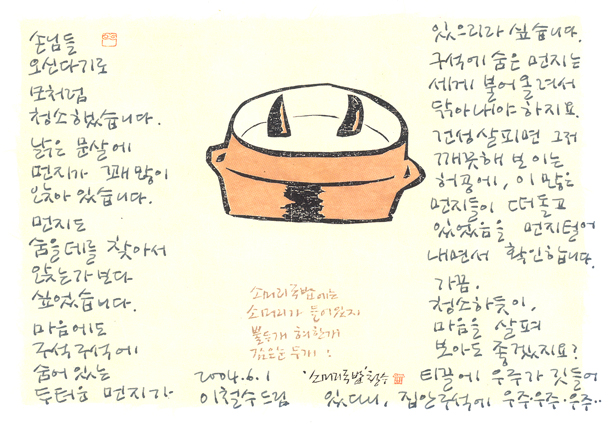 손님들
오신다기로
모처럼
청소했습니다.
낡은 문살에
먼지가 꽤 많이
앉아 있습니다.
먼지도
숨을데를 찾아서
앉는가 보다
싶었습니다.
마음에도
구석구석에
숨어 있는
두터운 먼지가
있으리라 싶습니다.
구석에 숨은 먼지는
세게 불어 올려서
닦아내야 하지요.
건성살피면 그저
깨끗해 보이는
허공에, 이 많은
먼지들이 떠돌고
있었음을 먼지털어
내면서 확인합니다.
가끔.
청소하듯이,
마음을 살펴
보아도 좋겠지요?
티끌에 우주가 깃들어
있다니, 집안구석에 우주·우주·우주··
소머리국밥에는
소머리가 들어있지
뿔두개
검은눈 두개!
2004.6.1
이철수드림
'소머리국밥' 철수